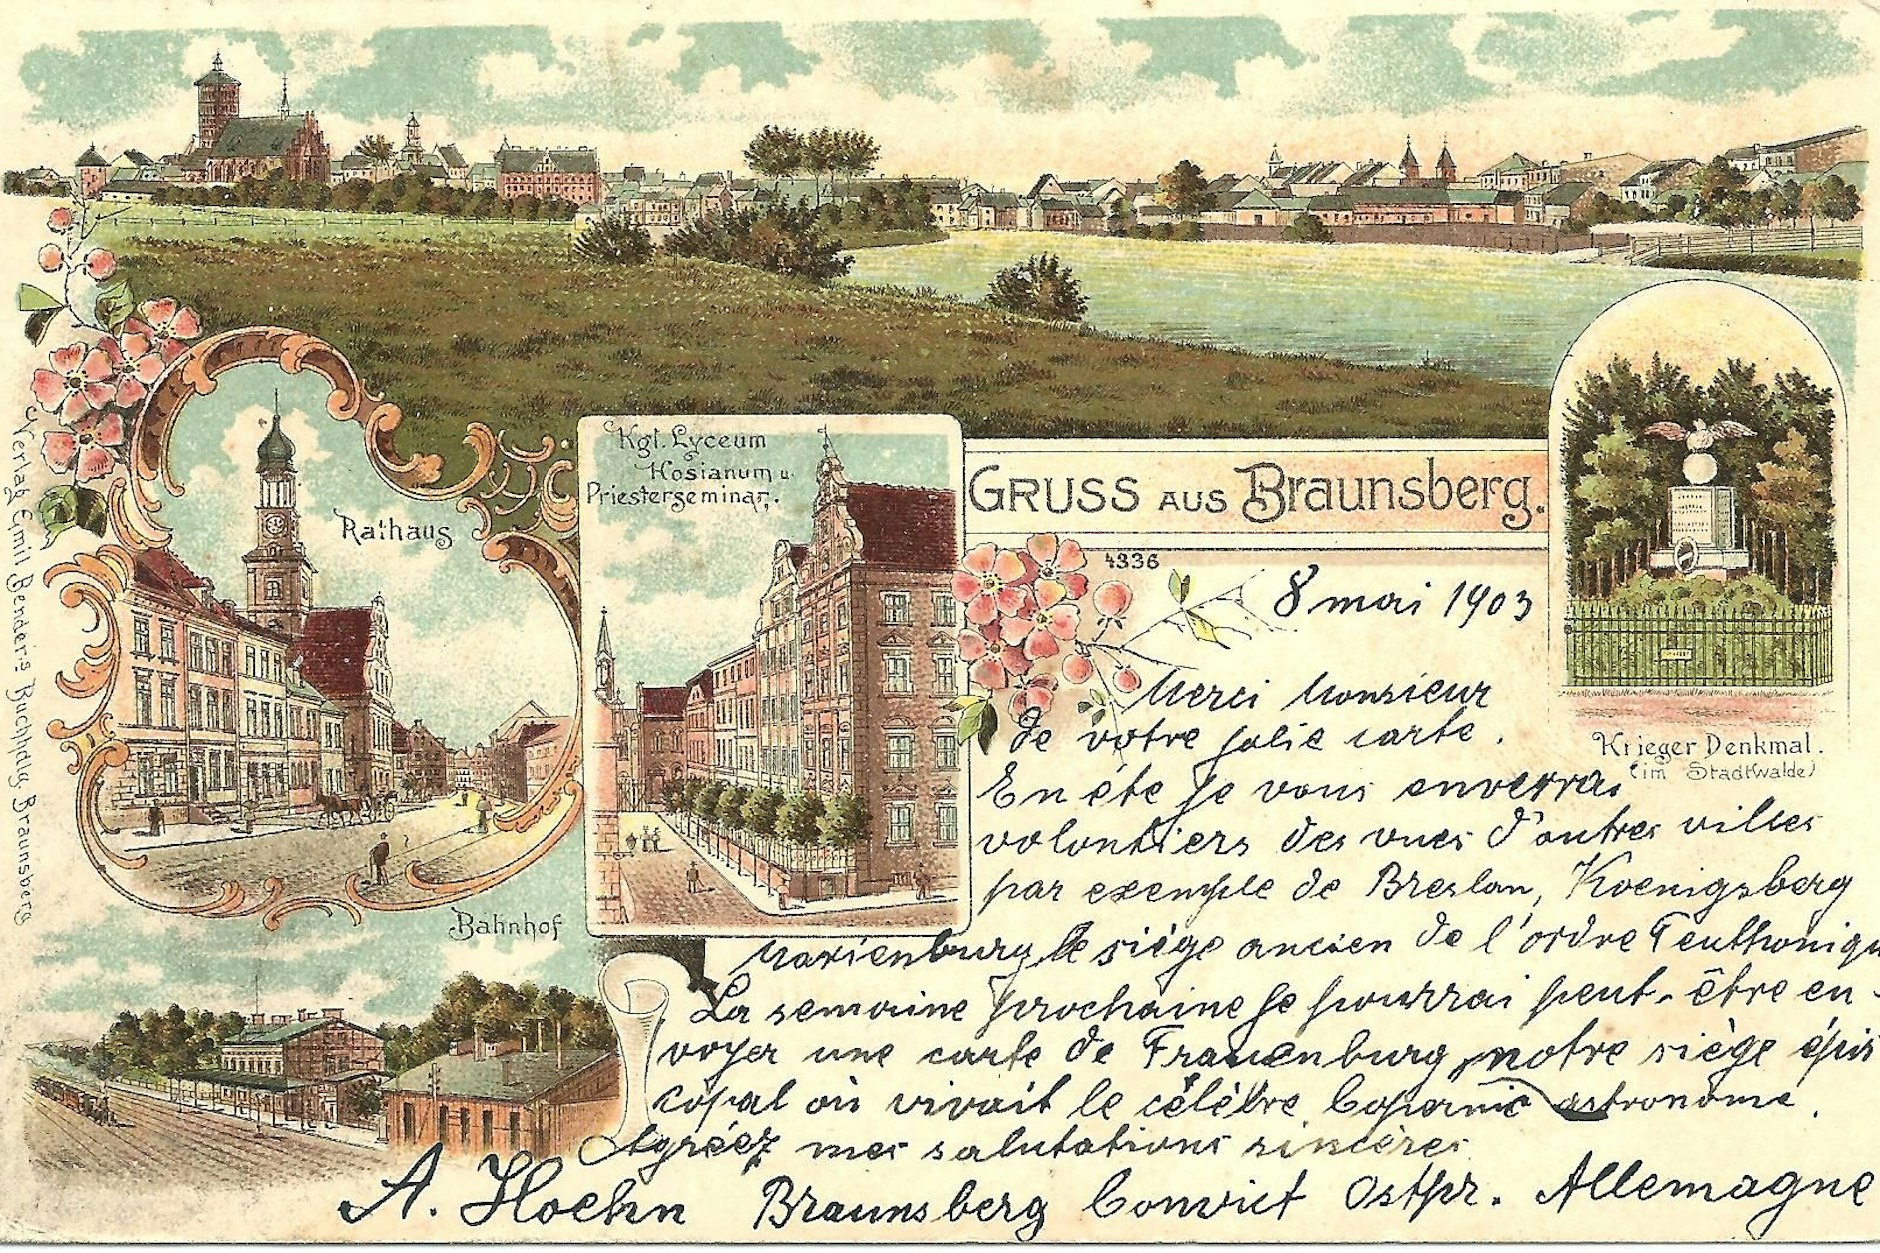 Kgl. Lyceum
Hosianum u.
Priesterseminar.
Rathaus
GRUSS AUS Braunsberg.
4336
8 mai 1903
Merci Monsieur
de votre jolie carte.
En éte je vous enverrai
volontiers des vues d'autres villes
par exemple de Breslau, Koenigsberg
Marienburg, le siége ancien de l'ordre Teuthoniqu
La semaine prochaine je pourrai peut-être en-
voyer une carte de Frauenburg, notre siège épis
copal où vivait le célèbre Copernic astronome.
Agréez mes salutations sincères
A. Hoehn Braunsberg Convict Ostpr. Allemagne
Krieger Denkmal.
(im Stadtwalde)
Bahnhof
Verlag Emil Bender's Buchhdlg, Braunsberg